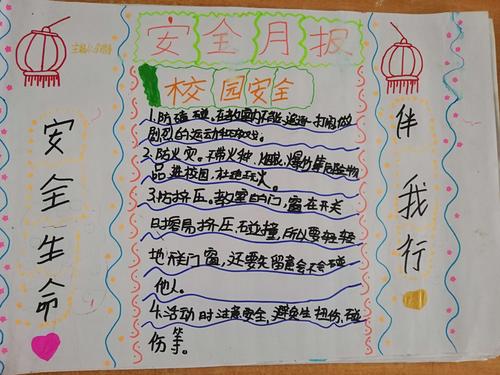 安全月报
校园安全
安全生命
伴我行
1.防磕碰。在教室内不能追逐、打闹做
剧烈的运动和游戏。
2.防火灾。不带火种、烟火、爆竹等危险物
品进校园,杜绝玩火。
3.防挤压。教室的门,窗在开关
时容易挤压,碰撞,所以要轻轻
地开关门窗,还要先留意会不会碰
他人。
4.活动时注意安全,避免生扭伤、碰
伤等。